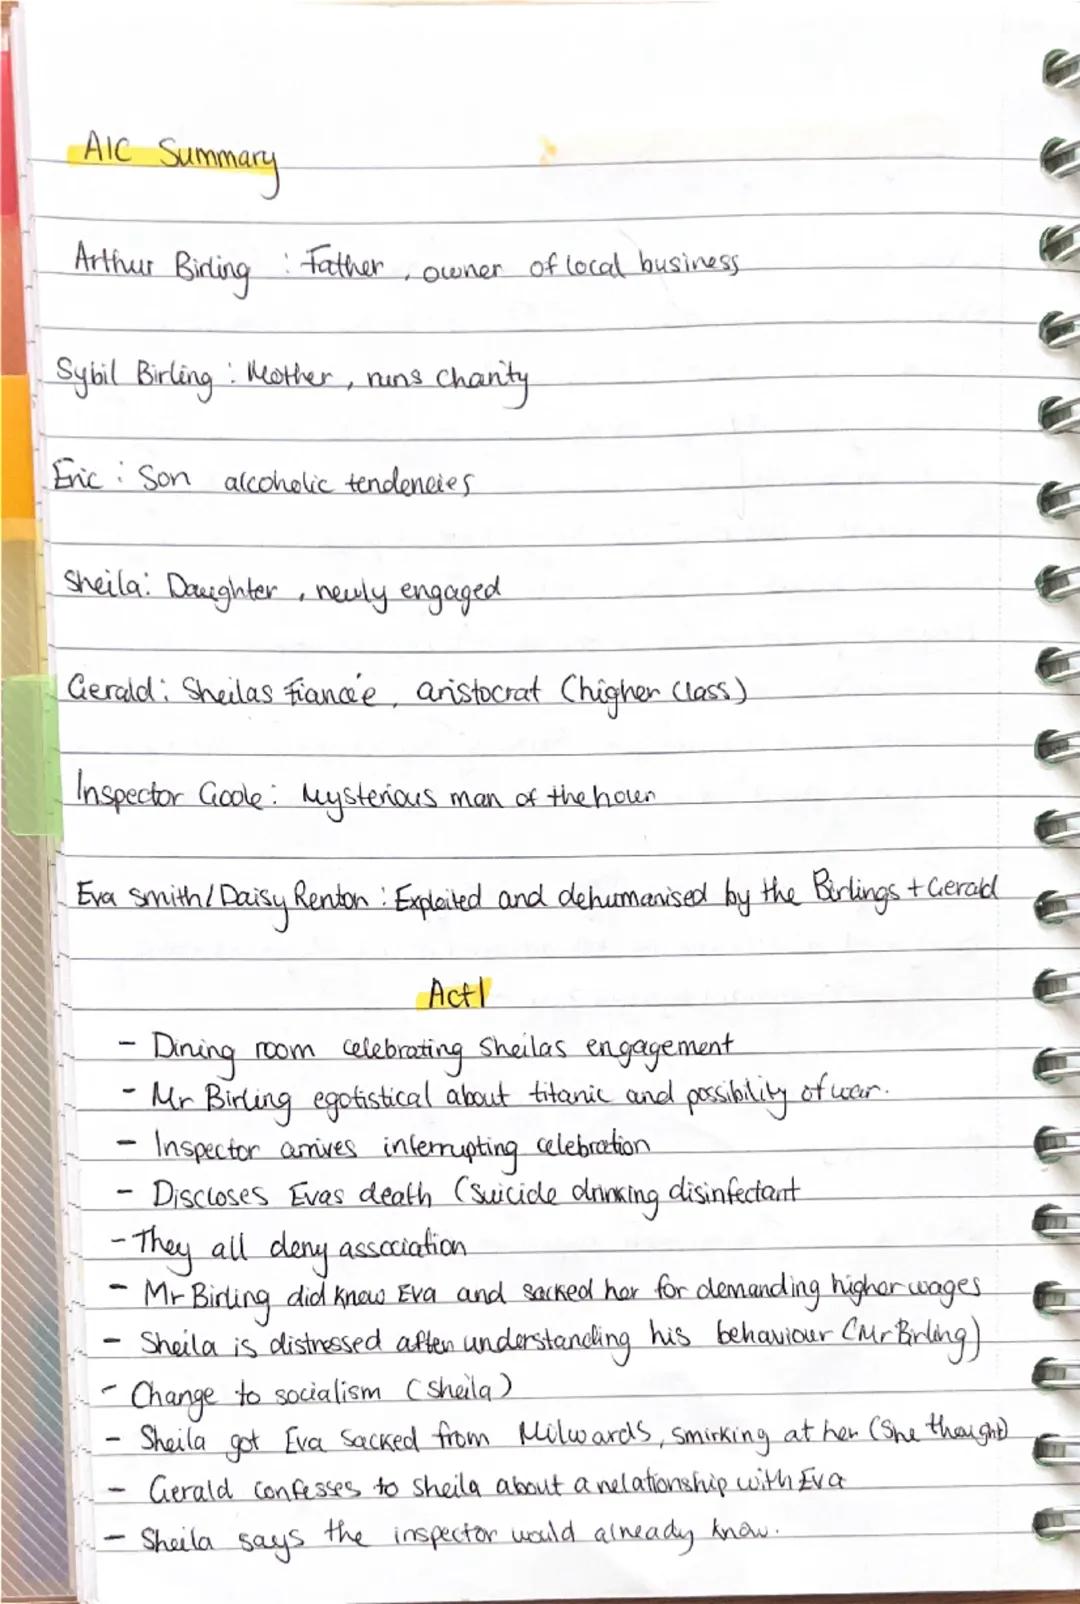 AIC Summary
Arthur Birling : Father, owner of local business
Sybil Birling : Mother, runs charity
Eric : Son alcoholic tendencies
Sheila: Daughter, newly engaged
Gerald: Sheilas fiancée, aristocrat (higher class)
Inspector Goole: Mysterious man of the hour
Eva Smith/Daisy Renton : Exploited and dehumanised by the Birlings + Gerald
Act 1
- Dining room celebrating Sheilas engagement
- Mr Birling egotistical about titanic and possibility of war.
- Inspector arrives interrupting celebration
- Discloses Evas death (Suicide drinking disinfectant
- They all deny association
- Mr Birling did know Eva and sacked her for demanding higher wages
- Sheila is distressed after understanding his behaviour (Mr Birling)
- Change to socialism (Sheila)
- Sheila got Eva Sacked from Milwards, smirking at her (She thought)
- Gerald confesses to Sheila about a relationship with Eva
- Sheila says the inspector would already know.